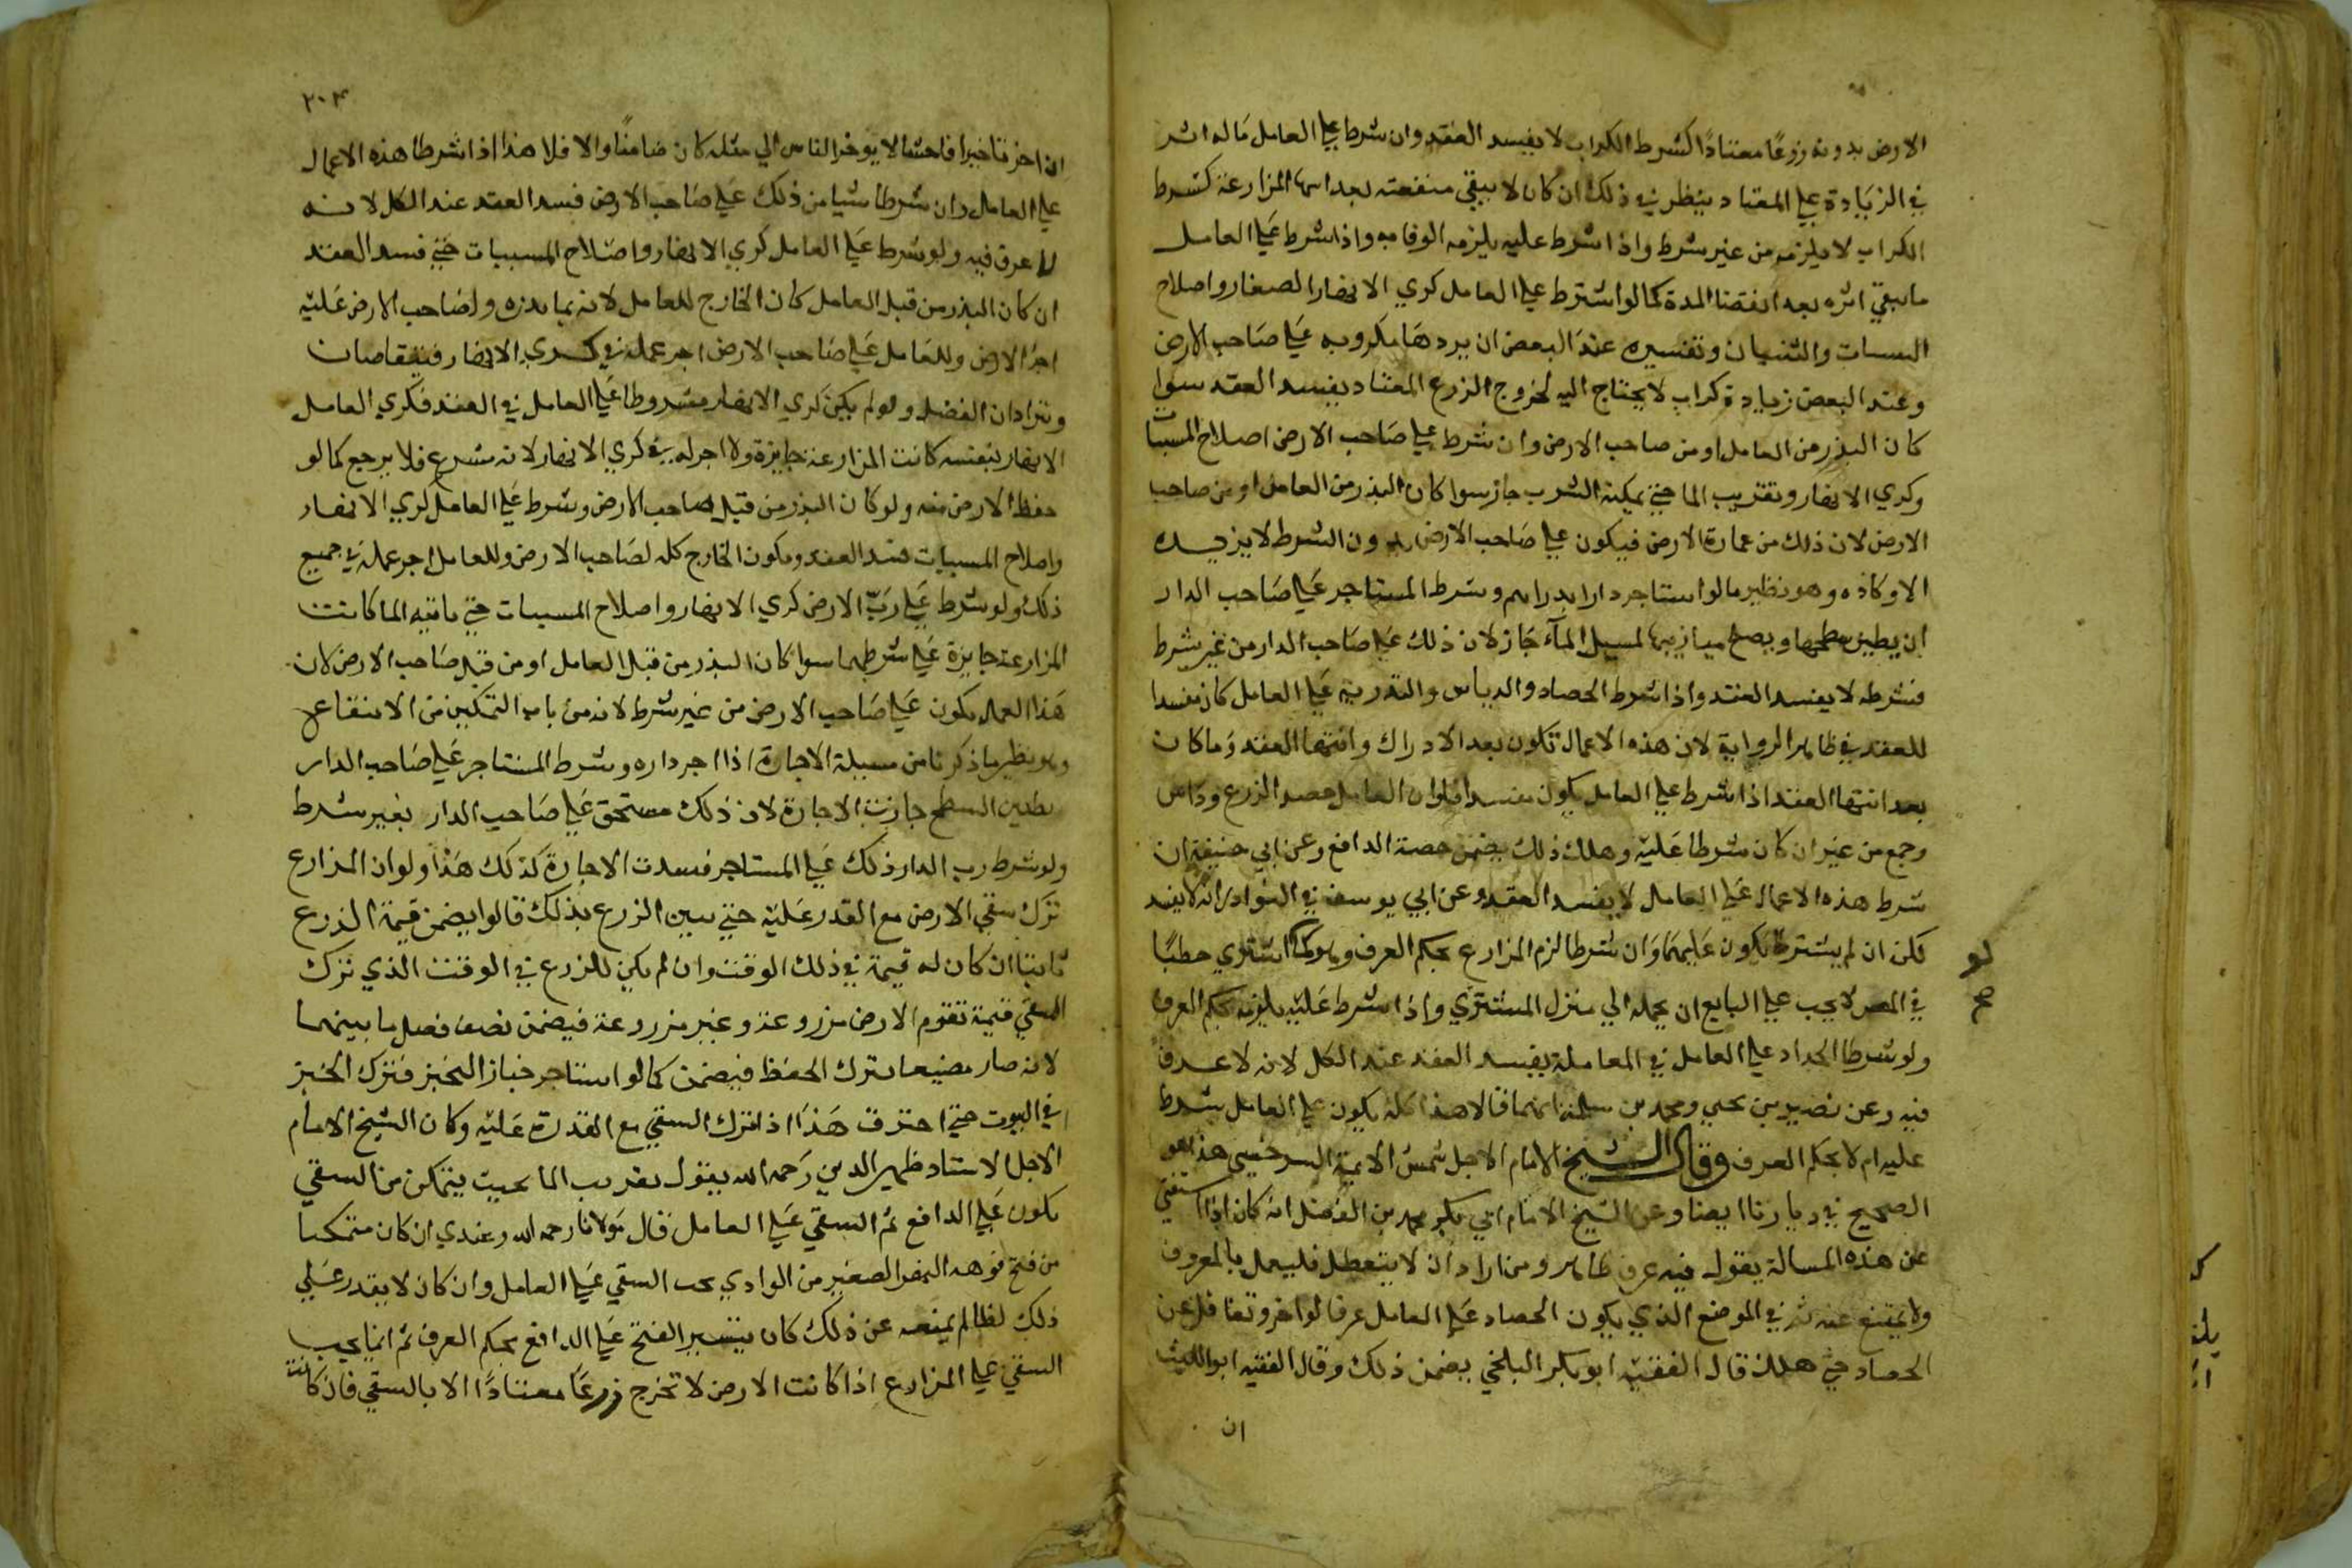 الارض بدونه زرعًا معتادًا كشرط الكراب لا يفسد العقد وان شرط علي العامل ماله اثر
في الزيادة علي المعتاد ينظر في ذلك ان كان لا يبقي منفعته بعد المزارعة كشرط
الكراب لا يلزمه من غير شرط واذا شرط عليه يلزمه الوفا به واذا شرط علي العامل
ما يبقي اثره بعد انقضا المدة كما لو اشترط علي العامل كري الانهار الصغار واصلاح
والثنيان وتفسيره عند البعض ان يردها مكروبه علي صاحب الارض
وعند البعض زيادة كراب لا يحتاج اليه لخروج الزرع المعتاد يفسد العقد سوا
كان البذر من العامل او من صاحب الارض وان شرط علي صاحب الارض اصلاح المسنيات
وكري الانهار وتقريب الما حتي يمكنه الشرب جاز سوا كان البذر من العامل او من صاحب
الارض لان ذلك من عمارة الارض فيكون علي صاحب الارض بدون الشرط لا يزيده
الا وكاده وهو نظير ما لو استاجر دارا بدراهم وشرط المستاجر علي صاحب الدار
ان يطين سطحها ويصلح ميازيبها لمسيل المآء جاز لان ذلك علي صاحب الدار من غير شرط
فشرطه لا يفسد العقد واذا شرط الحصاد والدياس والتذرية علي العامل كان مفسدا
للعقد في ظاهر الرواية لان هذه الاعمال تكون بعد الادراك وانتها العقد وما كان
بعد انتها العقد اذا شرط علي العامل يكون مفسدا فلو ان العامل حصد الزرع وداس
وجمع من غير ان كان شرطا عليه وهلك ذلك يضمن حصة الدافع وعن ابي حنيفة ان
شرط هذه الاعمال علي العامل لا يفسد العقد وعن ابي يوسف في النوادر انه لا يفسد
لكن ان لم يشترط يكون عليهما وان شرطا لزم المزارع بحكم العرف وهو كما اشتري حطبًا
لو
صح
في المصر لا يجب علي البايع ان يحمله الي منزل المشتري واذا شرط عليه يلزمه بحكم العرف
ولو شرطا الجداد علي العامل في المعاملة يفسد العقد عند الكل لانه لا عرف
فيه وعن نصير بن يحيي ومحمد بن سلمة انهما قالا هذا كله يكون علي العامل شرط
عليه ام لا بحكم العرف وقال الشيخ الامام الاجل شمس الايمة السرخسي هذا هو
الصحيح في ديارنا ايضا وعن الشيخ الامام ابي بكر محمد بن الفضل انه كان اذا استفتي
عن هذه المسالة يقول فيه عرف ظاهر ومن اراد ان لا يتعطل فليعمل بالمعروف
ولا يمتنع عنه ثم في الموضع الذي يكون الحصاد علي العامل عرفا لو اخر وتغافل عن
الحصاد حتي هلك قال الفقيه ابو بكر البلخي يضمن ذلك وقال الفقيه ابو الليث
ان
٢٠٤
ان اخر تاخيرا فاحشا لا يوخر الناس الي مثله كان ضامنًا والا فلا هذا اذا شرطا هذه الاعمال
علي العامل وان شرطا شيا من ذلك علي صاحب الارض فسد العقد عند الكل لانه
لا عرف فيه ولو شرط علي العامل كري الانهار واصلاح المسنيات حتي فسد العقد
ان كان البذر من قبل العامل كان الخارج للعامل لانه نما بذره ولصاحب الارض عليه
اجر الارض وللعامل علي صاحب الارض اجر عمله في كري الانهار فيتقاصان
ويترادان الفضل ولو لم يكن كري الانهار مشروطا علي العامل في العقد فكري العامل
الانهار بنفسه كانت المزارعة جايزة ولا اجر له في كري الانهار لانه تبرع فلا يرجع كما لو
حفظ الارض منه ولو كان البذر من قبل صاحب الارض وشرط علي العامل كري الانهار
واصلاح المسنيات فسد العقد ويكون الخارج كله لصاحب الارض وللعامل اجر عمله في جميع
ذلك ولو شرط علي رب الارض كري الانهار واصلاح المسنيات حتي ياتيه الما كانت
المزارعة جايزة علي شرطهما سوا كان البذر من قبل العامل او من قبل صاحب الارض لان
هذا العمل يكون علي صاحب الارض من غير شرط لانه من باب التمكين من الانتفاع
وهو نظير ما ذكرنا من مسيلة الاجارة اذا اجر داره وشرط المستاجر علي صاحب الدار
تطيين السطح جازت الاجارة لان ذلك مستحق علي صاحب الدار بغير شرط
ولو شرط رب الدار ذلك علي المستاجر فسدت الاجارة كذلك هذا ولو ان المزارع
ترك سقي الارض مع القدرة عليه حتي يبس الزرع بذلك قالوا يضمن قيمة الزرع
ثابتا ان كان له قيمة في ذلك الوقت وان لم يكن للزرع في الوقت الذي ترك
السقي قيمة تقوم الارض مزروعة وغير مزروعة فيضمن نصف فضل ما بينهما
لانه صار مضيعا بترك الحفظ فيضمن كما لو استاجر خبازا ليخبز فترك الخبز
في البيوت حتي احترق هذا اذا ترك السقي مع القدرة عليه وكان الشيخ الامام
الاجل الاستاد ظهير الدين رحمه الله يقول تقريب الما بحيث يتمكن من السقي
يكون علي الدافع ثم السقي علي العامل قال مولانا رحمه الله وعندي ان كان متمكنا
من فتح فوهة النهر الصغير من الوادي يجب السقي علي العامل وان كان لا يقدر علي
ذلك لظالم يمنعه عن ذلك كان تيسير الفتح علي الدافع بحكم العرف ثم انما يجب
السقي علي المزارع اذا كانت الارض لا تخرج زرعًا معتادًا الا بالسقي فان كانت